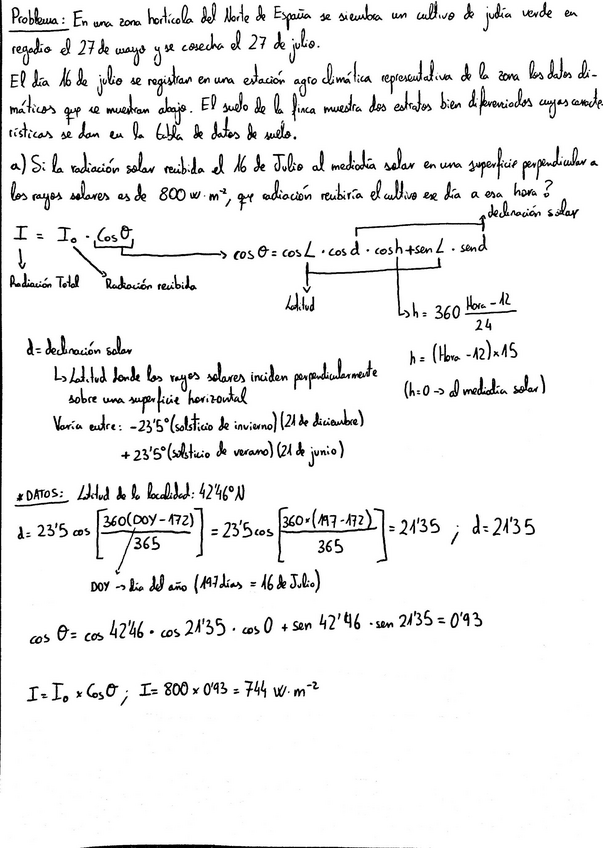 Problema: En una zona hortícola del Norte de España se siembra un cultivo de judía verde en
regadío el 27 de mayo y se cosecha el 27 de julio.
El día 16 de julio se registran en una estación agroclimática representativa de la zona los datos cli-
máticos que se muestran abajo. El suelo de la finca muestra dos estratos bien diferenciados cuyas caracte-
rísticas se dan en la tabla de datos de suelo.
a) Si la radiación solar recibida el 16 de Julio al mediodía solar en una superficie perpendicular a
los rayos solares es de 800 w·m⁻², que radiación recibiría el cultivo ese día a esa hora?
declinación solar
I = I₀ · Cosθ
cos θ = cos L · cos d · cos h + sen L · sen d
Radiación Total
Radiación recibida
Latitud
h = 360 (Hora - 12)/24
d = declinación solar
h = (Hora - 12) × 15
↳ Latitud donde los rayos solares inciden perpendicularmente
sobre una superficie horizontal
(h=0 → al mediodía solar)
Varía entre: -23'5° (solsticio de invierno) (21 de diciembre)
+23'5° (solsticio de verano) (21 de junio)
* DATOS: Latitud de la localidad: 42'46° N
d = 23'5 cos [360(DOY - 172)/365] = 23'5 cos [360×(197-172)/365] = 21'35 ; d = 21'35
DOY → día del año (197 días = 16 de Julio)
cos θ = cos 42'46 · cos 21'35 · cos 0 + sen 42'46 · sen 21'35 = 0'93
I = I₀ × Cosθ ; I = 800 × 0'93 = 744 W·m⁻²